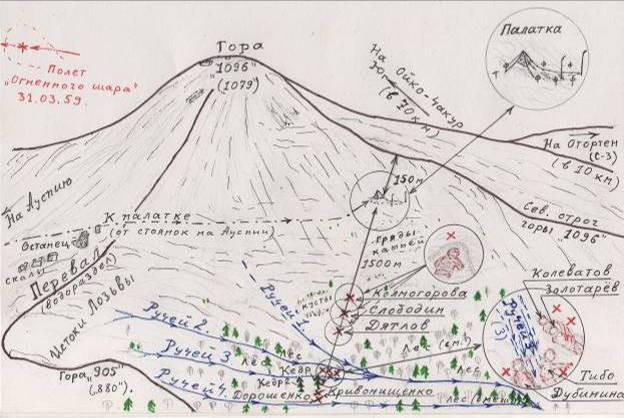 Полет
"Огненного шара"
31.03.59.
Гора
"1096"
(1079)
На Ойко-Чакур
Юг
(в 70 км)
Палатка
На Отортен
(С-3)
(в 10 км)
Сев. отрог
горы "1096"
150м
На Ауспию
К палатке
(от стоянок на Ауспии)
Останец
скалы
Перевал
(водораздел)
Истоки Лозьвы
гряды
камней
1500м
Колмогорова
Слободин
Дятлов
Колеватов
Золотарёв
Ручей 1
Ручей 2
Ручей 3
Ручей 4.
лес
лес
Лес
Лес
Кедр
Кедр 2
Дорошенко
Кривонищенко
Ручей
(3)
Тибо
Дубинина
Гора "905"
(„880").